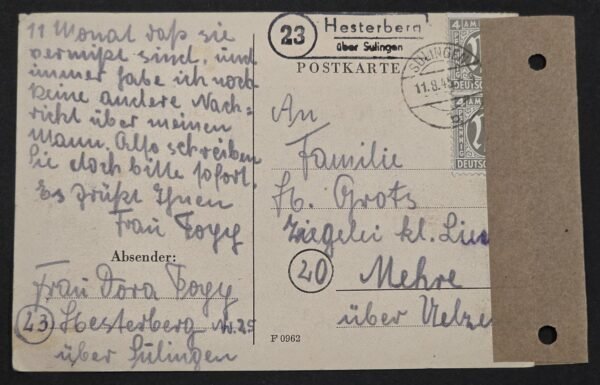 11 Monat daß sie
vermißt sind, und
immer habe ich noch
keine andere Nach-
richt über meinen
Mann. Also schreiben
Sie doch bitte sofort.
Es Grüßt Ihnen
Frau
Absender:
Frau Dora
23 Hesterberg N. 25
über Sulingen
23
Hesterberg
über Sulingen
POSTKARTE
SULINGEN
11.9.45
b
4 AM
DEUTSC
4 AM
PFENNIG
DEUTSC
An
Familie
H. Grots
Ziegelei kl.
20 Mehre
über Uelze
F 0962